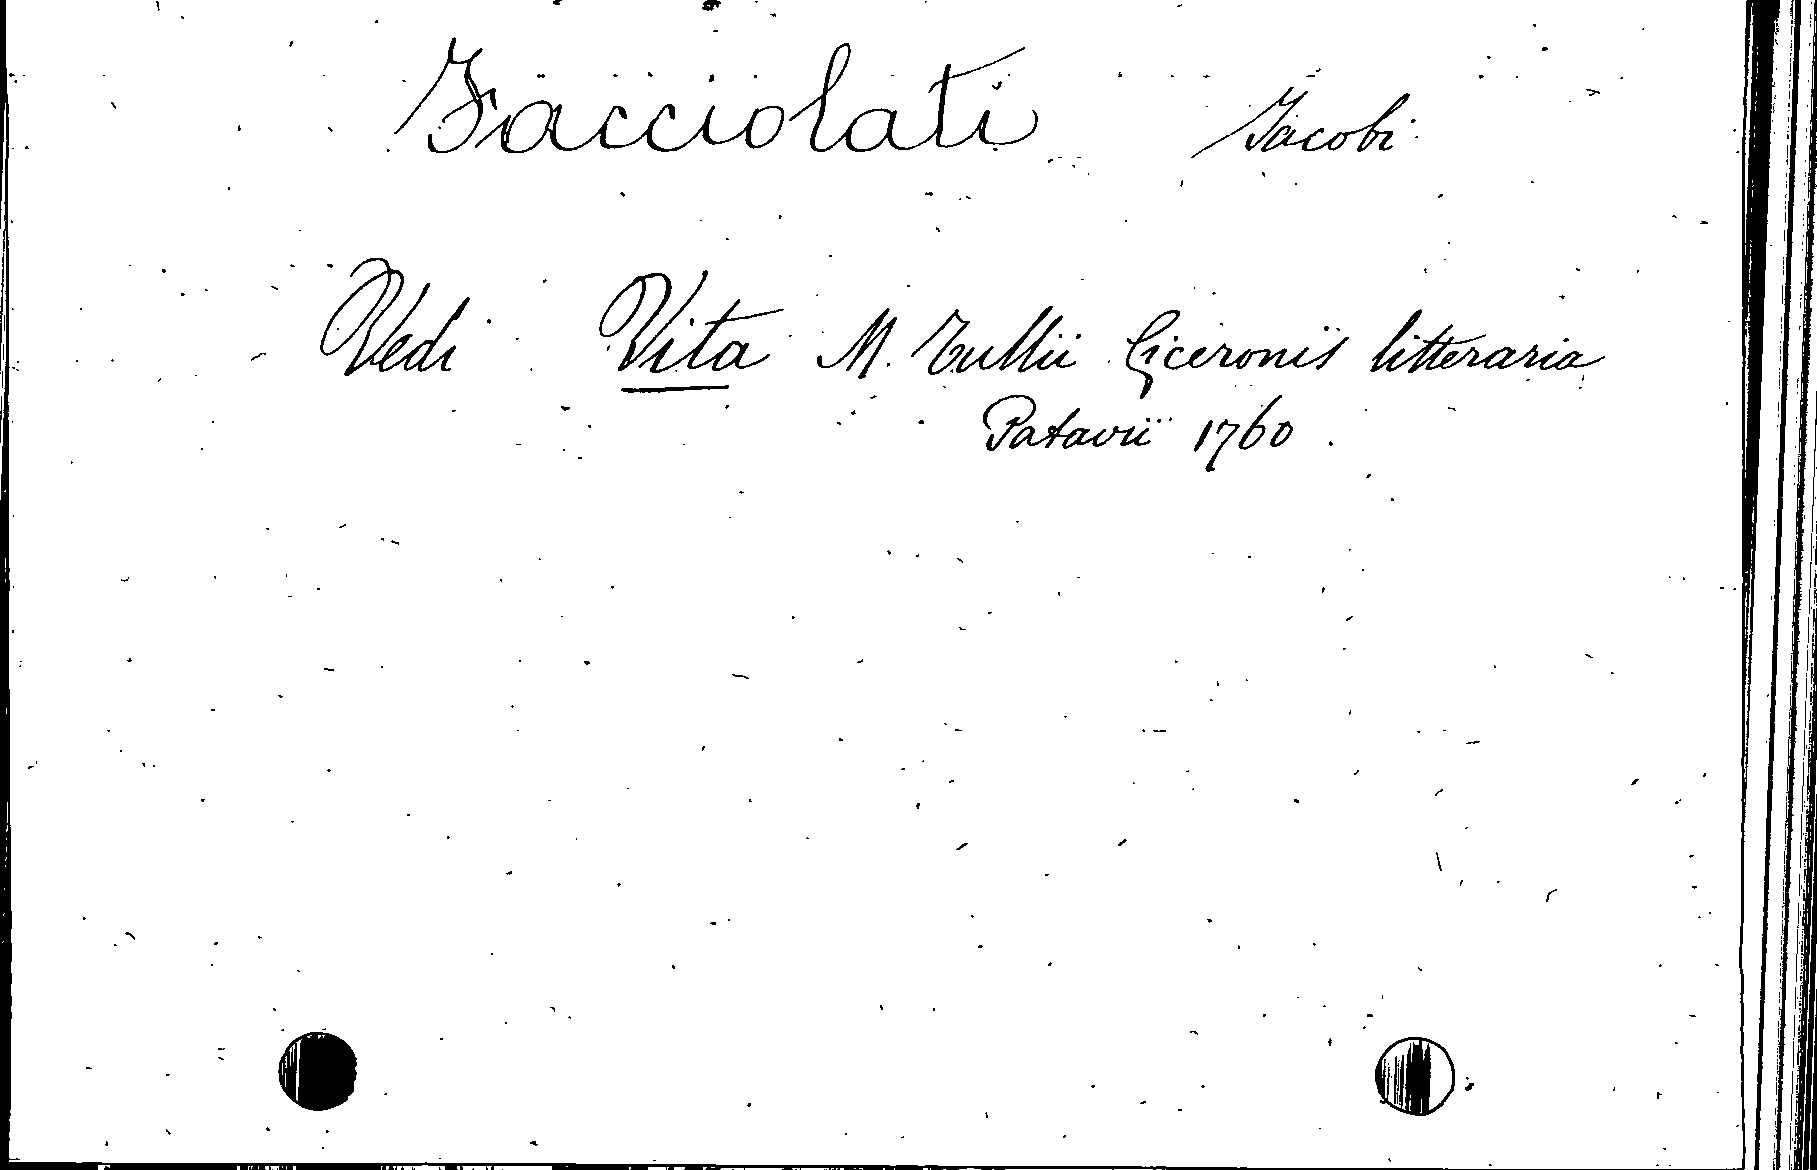 Facciolati Jacobi
Vedi Vita M. Tullii Ciceronis litteraria
Patavii 1760.